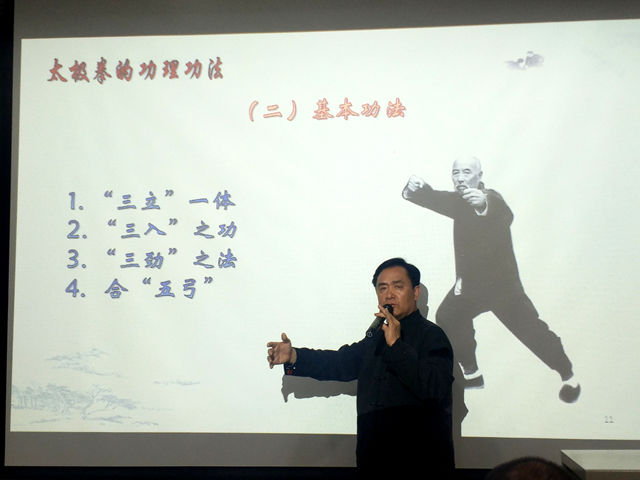 太极拳的功理功法
（二）基本功法
1. “三立”一体
2. “三入”之功
3. “三劲”之法
4. 合“五弓”
11